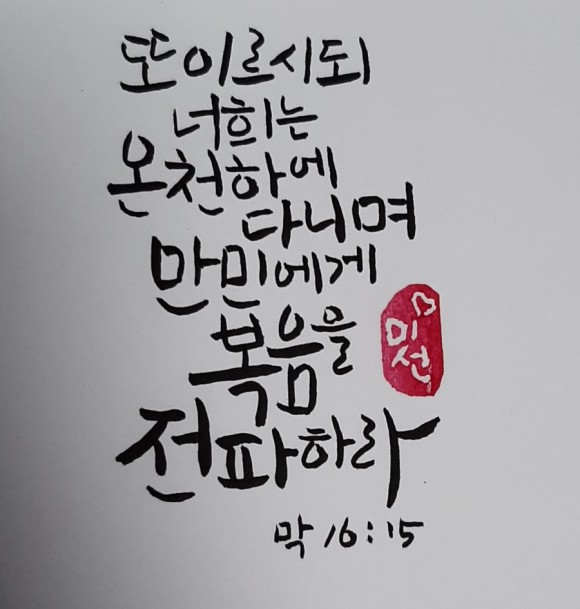 또 이르시되
너희는
온천하에
다니며
만민에게
복음을
미선
전파하라
막 16:15